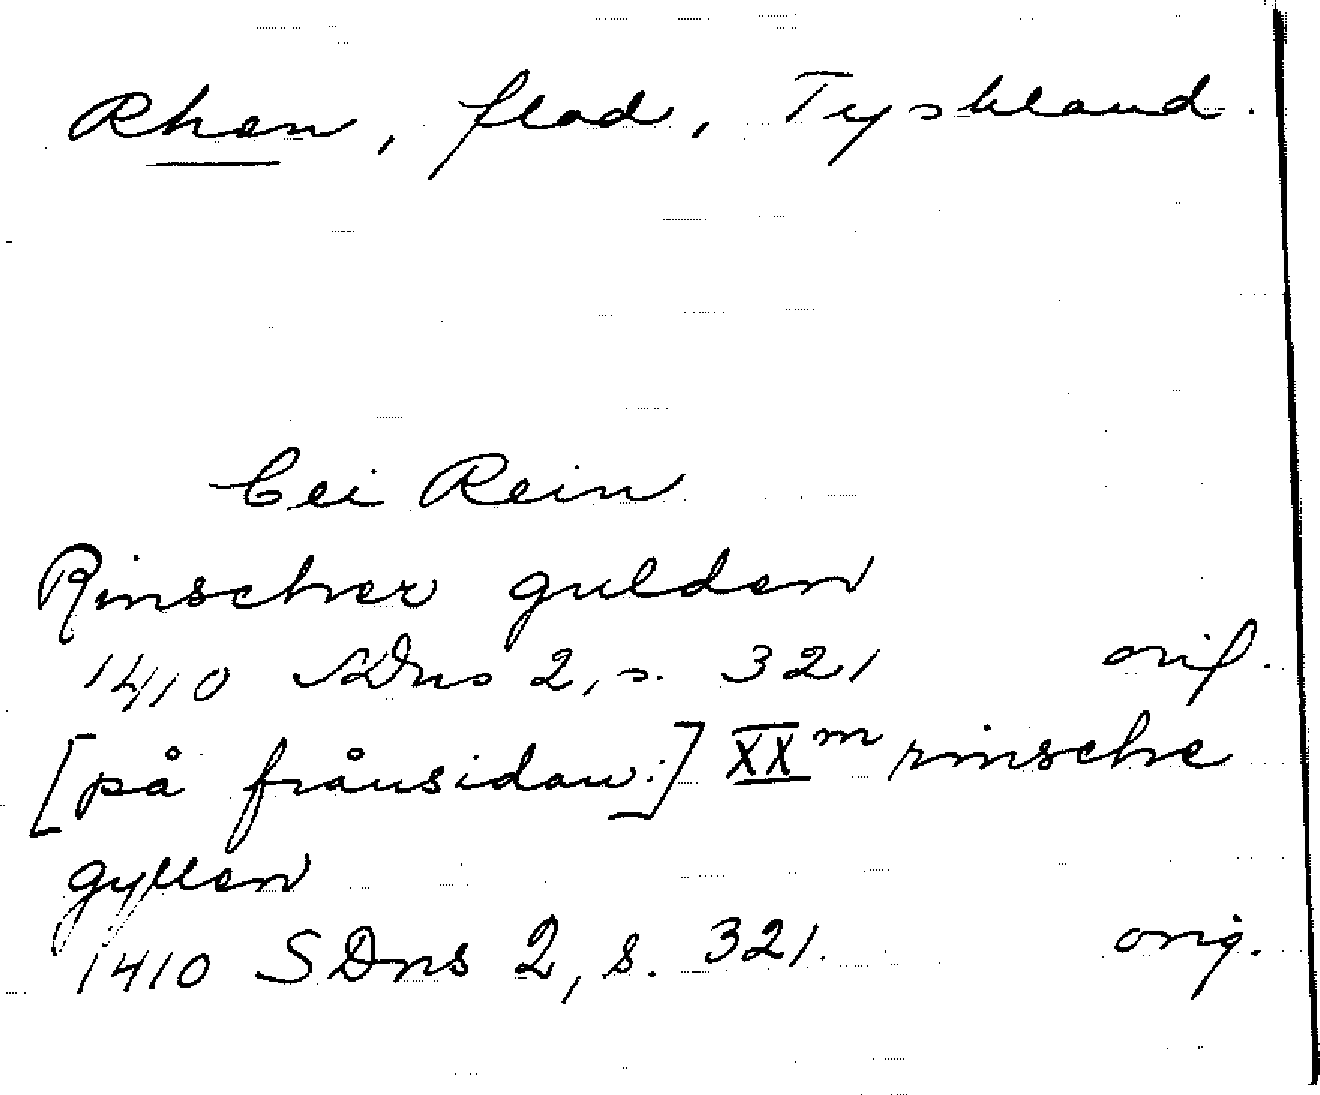 Rhen, flod, Tyskland.
bei Rein
Rinscher gulden
1410 SDns 2, s. 321 orig.
[på frånsidan:] XXᵐ rinsche
gyllen
1410 SDns 2, s. 321. orig.